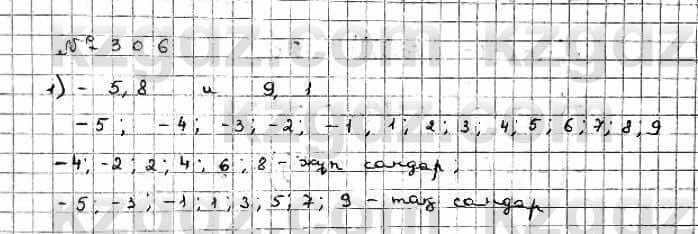 № 306
1) - 5,8 и 9,1
-5; -4; -3; -2; -1, 1; 2; 3; 4; 5; 6; 7; 8; 9
-4; -2; 2; 4; 6; 8 - жұп сандар;
-5; -3; -1; 1; 3; 5; 7; 9 - тақ сандар